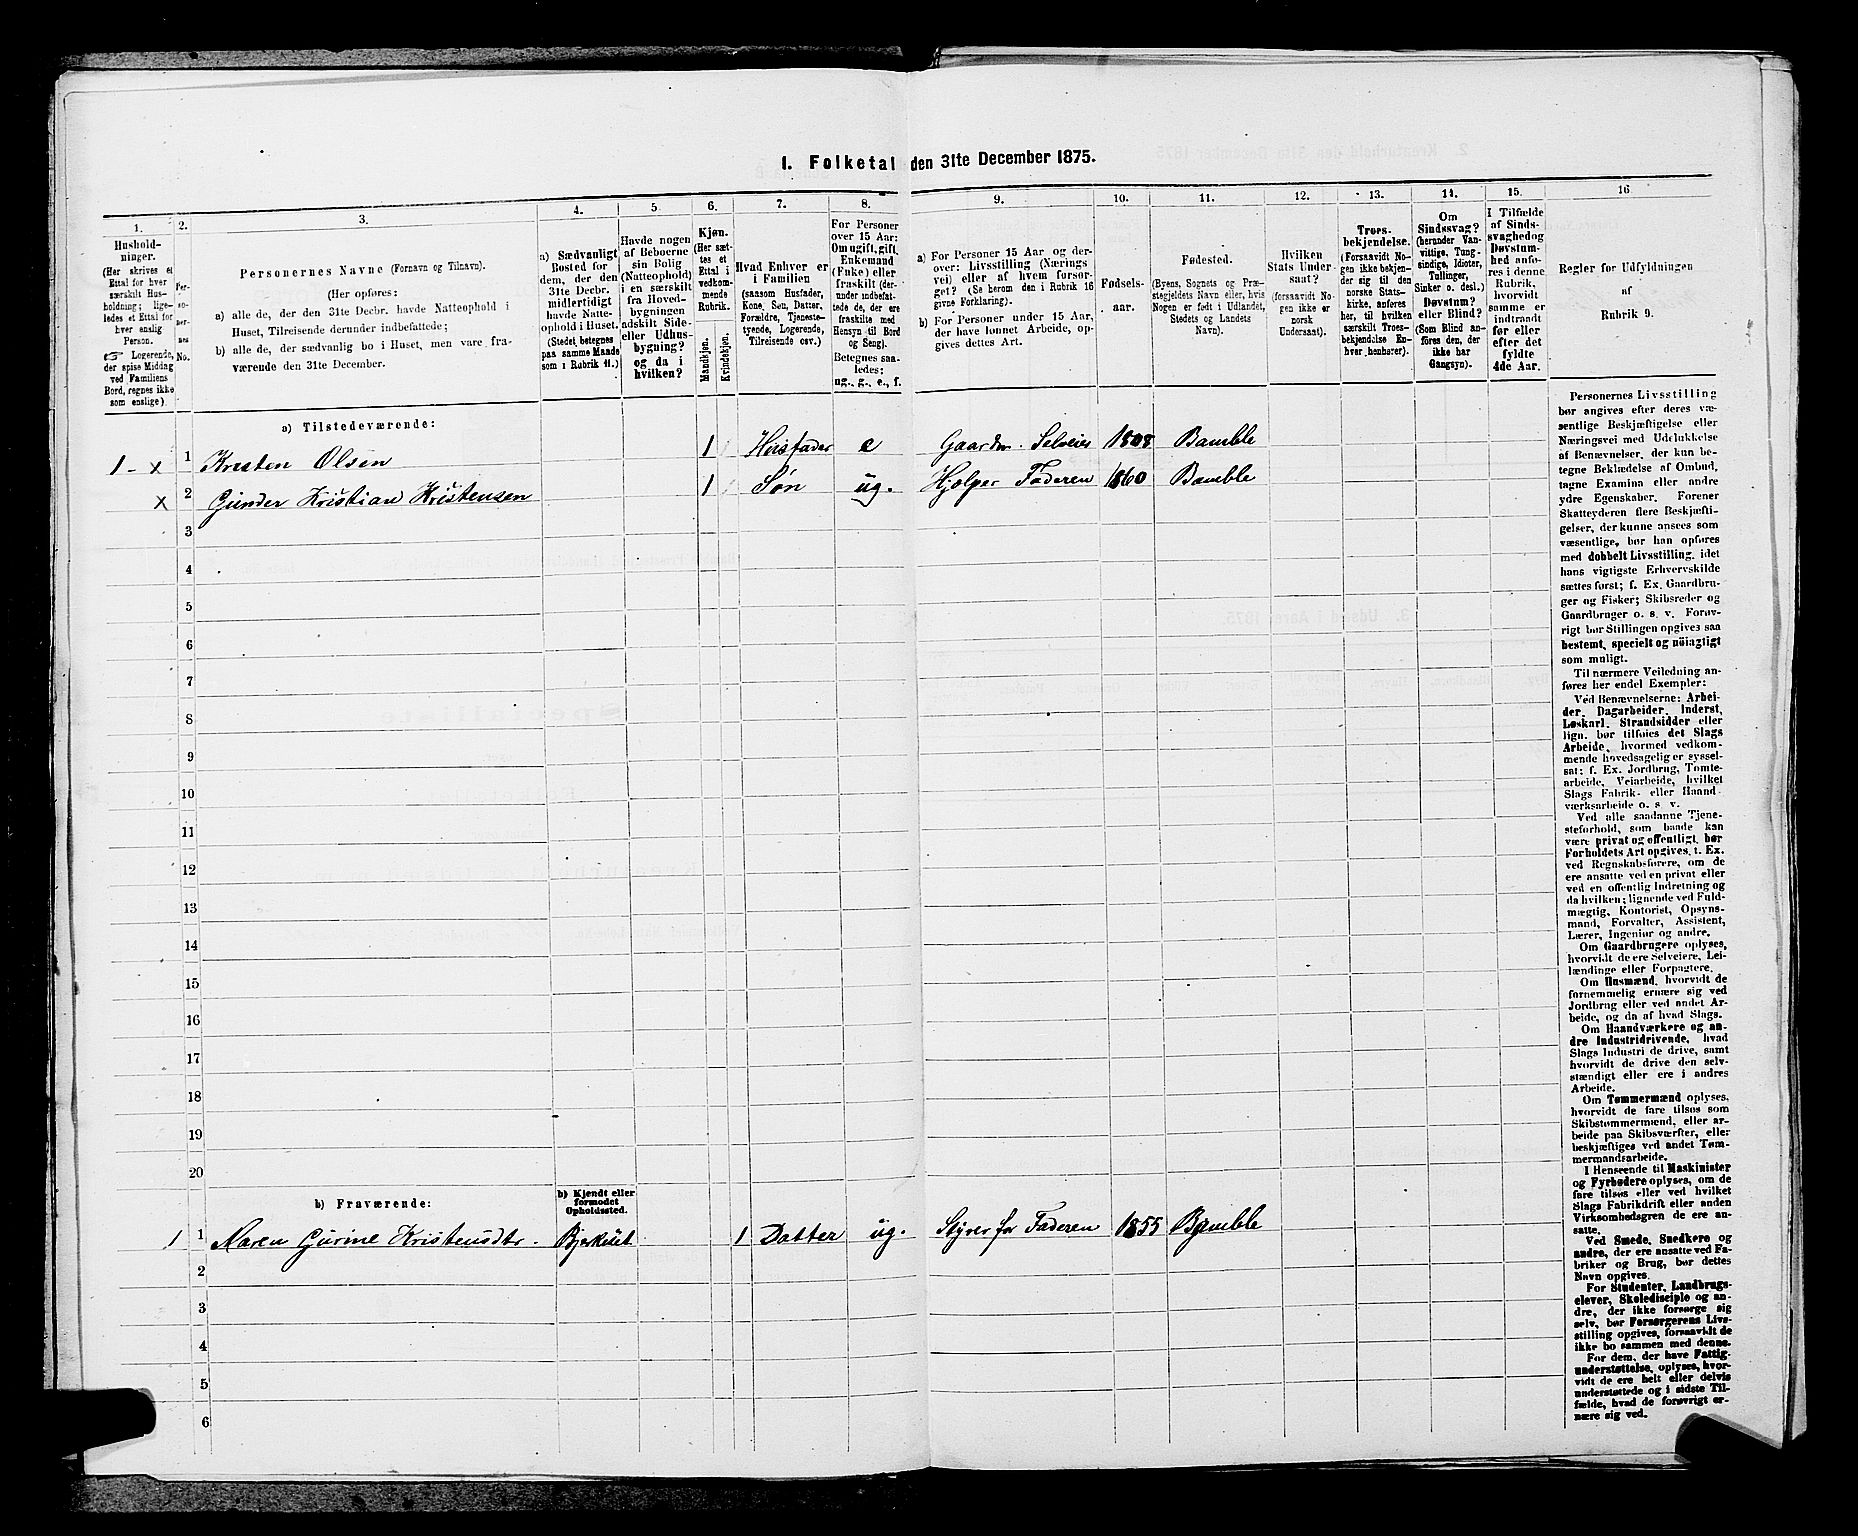 1. Folketal den 31te December 1875.
1.
2.
3.
4.
5.
6.
7.
8.
9.
10.
11.
12.
13.
14.
15.
16
Hushold-
ninger.
(Her skrives et
Ettal for hver
særskilt Hus-
holdning; lige-
ledes et Ettal for
hver enslig
Person.
☞ Logerende,
der spise Middag
ved Familiens
Bord, regnes ikke
som enslige).
Per-
so-
ner-
nes
No.
Personernes Navne (Fornavn og Tilnavn).
(Her opføres:
a) alle de, der den 31te Decbr. havde Natteophold i
Huset, Tilreisende derunder indbefattede;
b) alle de, der sædvanlig bo i Huset, men vare fra-
værende den 31te December.
a) Sædvanligt
Bosted for
dem, der den
31te Decbr.
midlertidigt
havde Natte-
ophold i Huset.
(Stedet betegnes
paa samme Maade
som i Rubrik 11.)
Havde nogen
af Beboerne
sin Bolig
(Natteophold)
i en særskilt
fra Hoved-
bygningen
adskilt Side-
eller Udhus-
bygning?
og da i
hvilken?
Kjøn.
(Her sæt-
tes et
Ettal i
vedkom-
mende
Rubrik.
Mandkjøn.
Kvindekjøn.
Hvad Enhver er
i Familien
(saasom Husfader,
Kone, Søn, Datter,
Forældre, Tjeneste-
tyende, Logerende,
Tilreisende osv.)
For Personer
over 15 Aar:
Om ugift, gift,
Enkemand
(Enke) eller
fraskilt (der-
under indbefat-
tede de, der ere
fraskilte med
Hensyn til Bord
og Seng).
Betegnes saa-
ledes:
ug., g., e., f.
a) For Personer 15 Aar og der-
over: Livsstilling (Nærings
vei) eller af hvem forsør-
get? (Se herom den i Rubrik 16
givne Forklaring).
b) For Personer under 15 Aar,
der have lønnet Arbeide, op-
gives dettes Art.
Fødsels-
aar.
Fødested.
(Byens, Sognets og Præ-
stegjeldets Navn eller, hvis
Nogen er født i Udlandet,
Stedets og Landets
Navn).
Hvilken
Stats Under-
saat?
(forsaavidt No-
gen ikke er
norsk
Undersaat).
Troes-
bekjendelse.
(Forsaavidt No-
gen ikke bekjen-
der sig til den
norske Stats-
kirke, anføres
her, til hvilken
særskilt Troes-
bekjendelse En-
hver henhører).
Om
Sindssvag?
(herunder Van-
vittige, Tung-
sindige, Idioter,
Tullinger,
Sinker o. desl.)
Døvstum?
eller Blind?
(Som Blind an-
føres den, der
ikke har
Gangsyn).
I Tilfælde
af Sinds-
svaghed og
Døvstum-
hed anfø-
res i denne
Rubrik,
hvorvidt
samme er
indtraadt
før eller
efter det
fyldte
4de Aar.
Regler for Udfyldningen
af
Rubrik 9.
a) Tilstedeværende:
1 - x 1 Kristen Olsen 1 Husfader e Gaardm. Selveier 1808 Bamble
x 2 Gunder Kristian Kristensen 1 Søn ug. Hjælper Faderen 1860 Bamble
3
4
5
6
7
8
9
10
11
12
13
14
15
16
17
18
19
20
b) Fraværende:
b) Kjendt eller
formodet
Opholdssted.
1 1 Karen Gurine Kristensdtr. 1 Datter ug. Styrer for Faderen 1855 Bamble
2
3
4
5
6
Personernes Livsstilling
bør angives efter deres væ-
sentlige Beskjæftigelse eller
Næringsvei med Udelukkelse
af Benævnelser, der kun be-
tegne Beklædelse af Ombud,
tagne Examina eller andre
ydre Egenskaber. Forener
Skatteyderen flere Beskjæfti-
gelser, der kunne ansees som
væsentlige, bør han opføres
med dobbelt Livsstilling, idet
hans vigtigste Erhvervskilde
sættes først; f. Ex. Gaardbru-
ger og Fisker; Skibsreder og
Gaardbruger o. s. v. Forøv-
rigt bør Stillingen opgives saa
bestemt, specielt og nöiagtigt
som muligt.
Til nærmere Veiledning an-
føres her endel Exempler:
Ved Benævnelserne: Arbei-
der, Dagarbeider, Inderst,
Løskarl, Strandsidder eller
lign. bør tilføies det Slags
Arbeide, hvormed vedkom-
mende hovedsagelig er syssel-
sat; f. Ex. Jordbrug, Tomte-
arbeide, Veiarbeide, hvilket
Slags Fabrik- eller Haand
værksarbeide o. s. v.
Ved alle saadanne Tjene-
steforhold, som baade kan
være privat og offentligt, bør
Forholdets Art opgives, t. Ex.
ved Regnskabsførere, om de
ere ansatte ved en privat eller
ved en offentlig Indretning og
da hvilken; lignende ved Fuld-
mægtig, Kontorist, Opsyns-
mand, Forvalter, Assistent,
Lærer, Ingeniør og andre.
Om Gaardbrugere oplyses,
hvorvidt de ere Selveiere, Lei-
lændinge eller Forpagtere.
Om Husmænd, hvorvidt de
fornemmelig ernære sig ved
Jordbrug eller ved andet Ar-
beide, og da af hvad Slags.
Om Haandværkere og an-
dre Industridrivende, hvad
Slags Industri de drive, samt
hvorvidt de drive den selv-
stændigt eller ere i andres
Arbeide.
Om Tømmermænd oplyses,
hvorvidt de fare tilsøs som
Skibstømmermænd, eller ar-
beide paa Skibsværfter, eller
beskjæftiges ved andet Tøm-
mermandsarbeide.
I Henseende til Maskinister
og Fyrbødere oplyses, om de
fare tilsøs eller ved hvilket
Slags Fabrikdrift eller anden
Virksomhedsgren de ere an-
satte.
Ved Smede, Snedkere og
andre, der ere ansatte ved Fa-
briker og Brug, bør dettes
Navn opgives.
For Studenter, Landbrugs-
elever, Skoledisciple og an-
dre, der ikke forsørge sig
selv, bør Forsørgerens Livs-
stilling opgives, forsaavidt de
ikke bo sammen med denne.
For dem, der have Fattig-
understøttelse, oplyses, hvor-
vidt de ere helt eller delvis
understøttede og i sidste Til-
fælde, hvad de forøvrigt er-
nære sig ved.